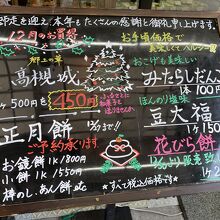 師走を迎え、本年もたくさんの感謝と御礼申し上げます。
12月のお買得
郷土の華
高槻城
1ヶ500円を
450円
お手頃価格で
美味しくてヘルシー
おこげも美味しい
みたらしだんご
1本100円
ほんのり塩味
豆大福
1ヶ150
正月餅
ご予約承ります。
お鏡餅 1K 1800円
小餅 1K 1550円
棒のし、あん餅 etc
花びら餅
1ヶ
*すべて税込価格です*